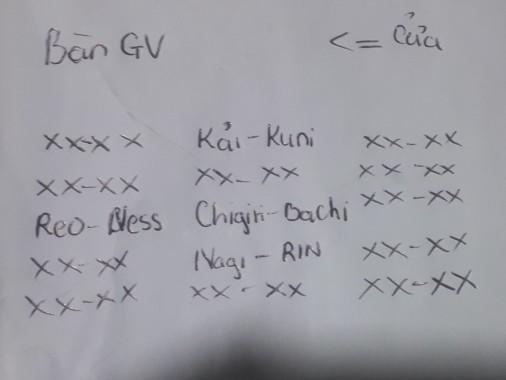 Bàn GV <= Cửa
xx-xx Kải-Kuni xx-xx
xx-xx xx-xx xx-xx
Reo-Ness Chigiri-Bachi xx-xx
xx-xx Nagi-RIN xx-xx
xx-xx xx-xx xx-xx